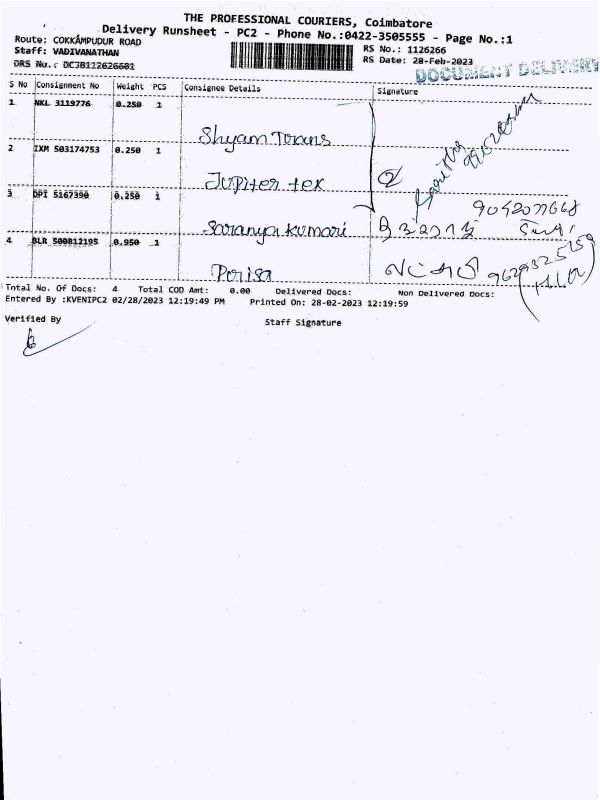 THE PROFESSIONAL COURIERS, Coimbatore
Delivery Runsheet - PC2 - Phone No.:0422-3505555 - Page No.:1
Route: COKKAMPUDUR ROAD
Staff: VADIVANATHAN
DRS No.: DC3B112626681
RS No.: 1126266
RS Date: 28-Feb-2023
DOCUMENT DELIVERY
S No Consignment No Weight PCS Consignee Details Signature
1 NKL 3119776 0.250 1
Shyam Trans
2 IXM 503174753 0.250 1
Jupiter tex 2
3 DPI 5167390 0.250 1
Saranya kumari
4 BLR 500812195 0.950 1
9629325259
Total No. Of Docs: 4 Total COD Amt: 0.00 Delivered Docs: Non Delivered Docs:
Entered By :KVENIPC2 02/28/2023 12:19:49 PM Printed On: 28-02-2023 12:19:59
Verified By Staff Signature